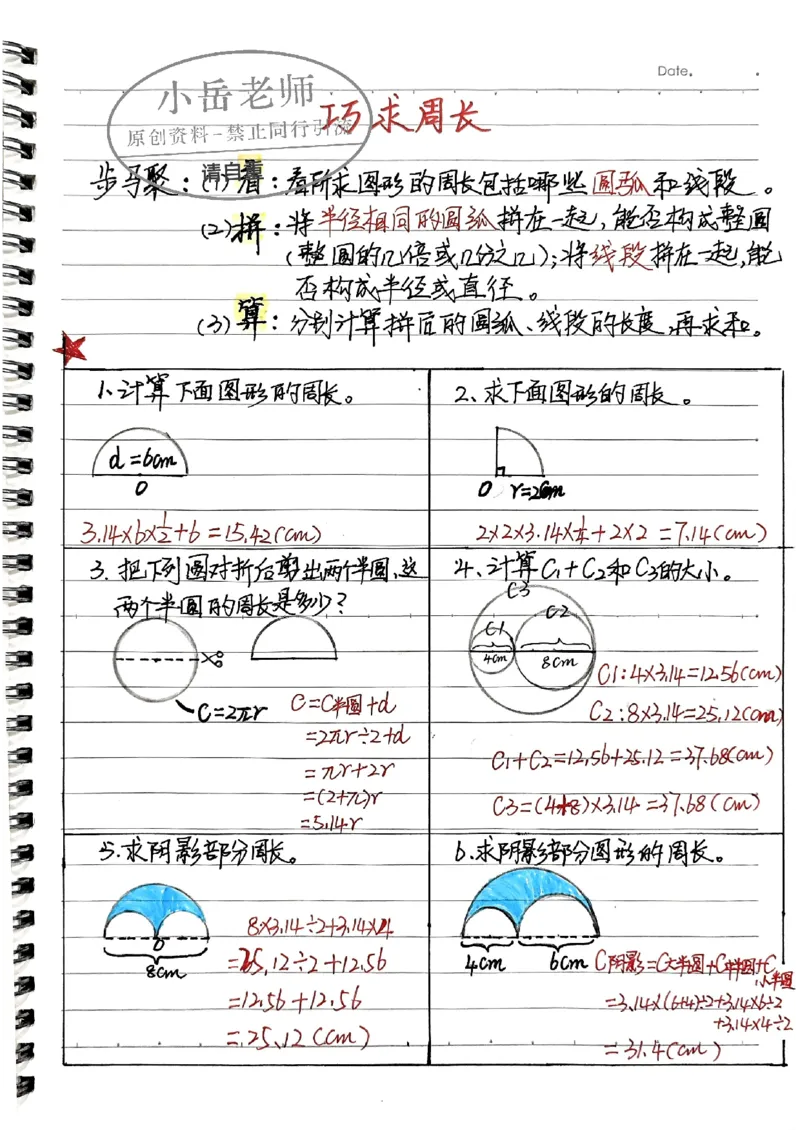 Date.
小岳老师
原创资料-禁止同行引流
请自重
巧求周长
步骤:(1)看:看所求图形的周长包括哪些圆弧和线段。
(2)拼:将半径相同的圆弧拼在一起,能否构成整圆
(整圆的几倍或几分之几);将线段拼在一起,能
否构成半径或直径。
(3)算:分别计算拼后的圆弧、线段的长度,再求和。
1、计算下面图形的周长。
d=6cm
O
3.14×6×1/2+6=15.42(cm)
2、求下面图形的周长。
O r=2cm
2×2×3.14×1/4+2×2=7.14(cm)
3.把下列圆对折后剪出两个半圆,这
两个半圆的周长是多少?
C=2πr
C=C半圆+d
=2πr÷2+d
=πr+2r
=(2+π)r
=5.14r
4、计算C1+C2和C3的大小。
C3
C2
C1
4cm
8cm
C1:4×3.14=12.56(cm)
C2:8×3.14=25.12(cm)
C1+C2=12.56+25.12=37.68(cm)
C3=(4+8)×3.14=37.68(cm)
5.求阴影部分周长。
O
8cm
8×3.14÷2+3.14×4
=25.12÷2+12.56
=12.56+12.56
=25.12(cm)
6.求阴影部分图形的周长。
4cm 6cm
C阴影=C大半圆+C中半圆+C小半圆
=3.14×(6+4)÷2+3.14×6÷2
+3.14×4÷2
=31.4(cm)